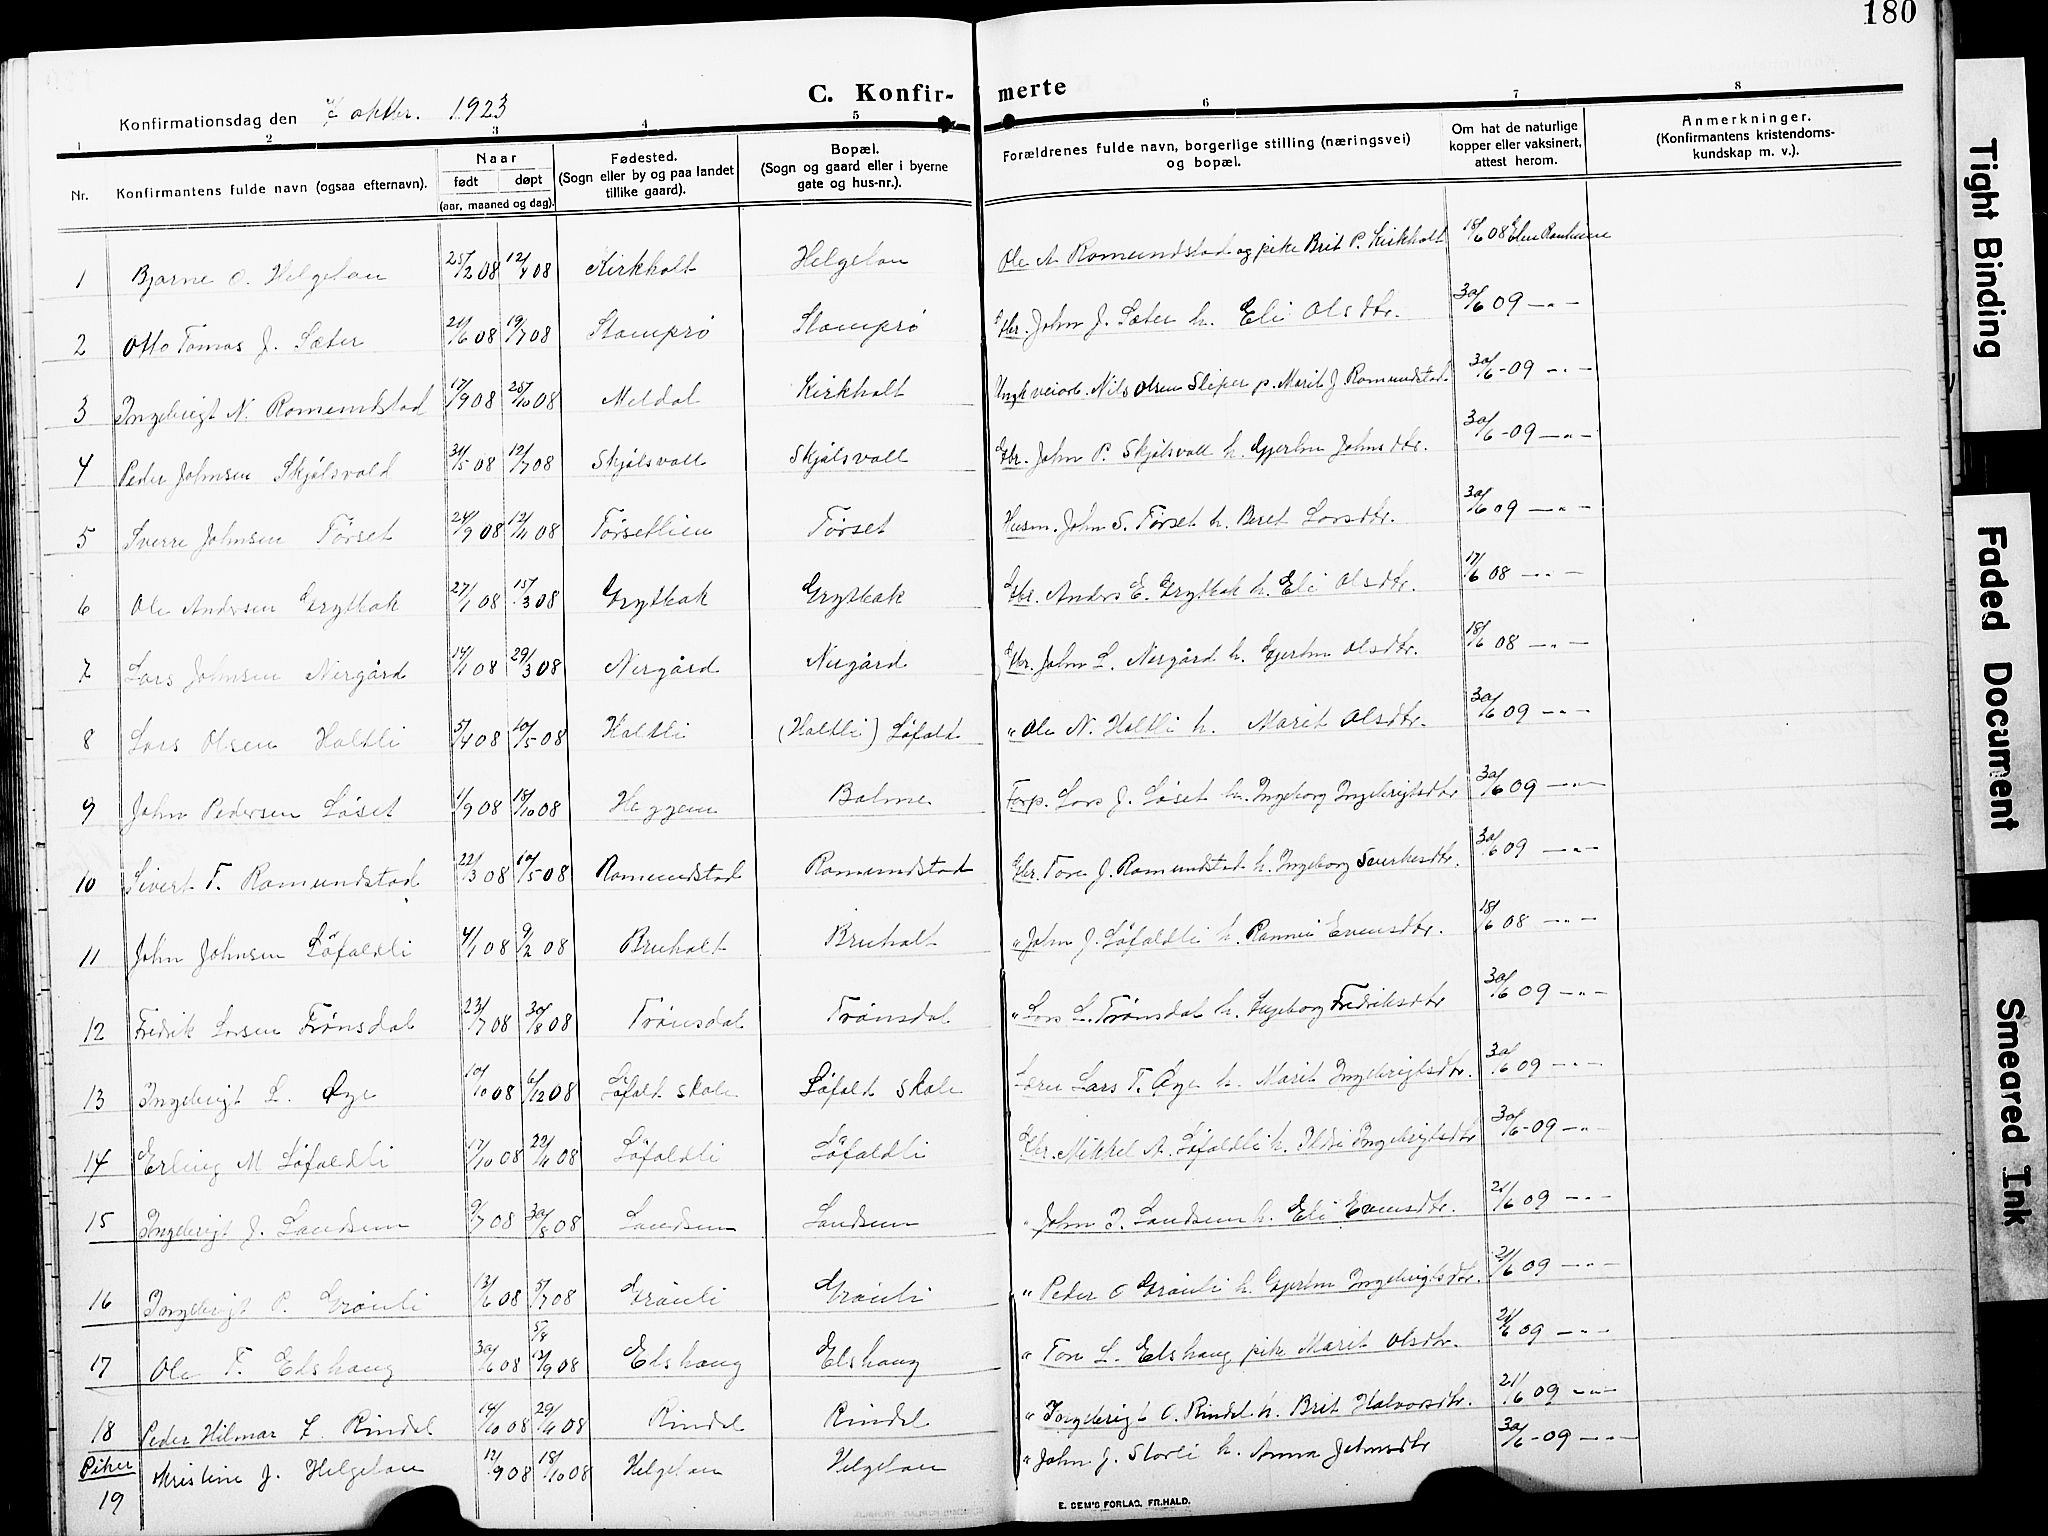 180
C. Konfir- merte
Konfirmationsdag den 7 oktbr. 1923
1 2 3 4 5 6 7 8
Nr. Konfirmantens fulde navn (ogsaa efternavn). Naar født døpt (aar, maaned og dag). Fødested. (Sogn eller by og paa landet tillike gaard). Bopæl. (Sogn og gaard eller i byerne gate og hus-nr.). Forældrenes fulde navn, borgerlige stilling (næringsvei) og bopæl. Om hat de naturlige kopper eller vaksinert, attest herom. Anmerkninger. (Konfirmantens kristendoms-kundskap m. v.).
1 Bjarne O. Helgetun 25/2 08 12/4 08 Kirkholt Helgetun Ole A Romundstad og pike Brit P. Kirkholt 18/6 08
2 Otto Tomas J. Sæter 21/6 08 19/7 08 Stomprø Stomprø Gbr. John J. Sæter h. Eli Olsdtr. 30/6 09 — " —
3 Ingebrigt N. Romundstad 17/9 08 25/10 08 Meldal Kirkholt Ungk veiarb. Nils Olsen Sliper p. Marit J Romundstad 30/6 - 09 — " —
4 Peder Johnsen Skjølsvold 31/5 08 12/7 08 Skjølsvoll Skjølsvoll Gbr. John P. Skjølsvoll h. Gjertru Johnsdtr. 30/6 - 09 — " —
5 Sverre Johnsen Tørset 24/9 08 12/11 08 Tørsetlien Tørset Husm. John S. Tørset h. Beret Larsdtr. 30/6 09 — " —
6 Ole Andersen Grytbak 27/1 08 15/3 08 Grytbak Grytbak Gbr. Anders E. Grytbak h. Eli Olsdtr. 17/6 08 — " —
7 Lars Johnsen Nergård 14/1 08 29/3 08 Nergård Nergård Gbr. John L. Nergård h. Gjertru Olsdtr. 18/6 08 — " —
8 Lars Olsen Holtli 5/4 08 10/5 08 Holtli (Holtli) Løfald " Ole N. Holtli h. Marit Olsdtr. 30/6 09 — " —
9 John Pedersen Løset 1/9 08 18/10 08 Heggem Bolme Forp. Lars J. Løset h. Ingeborg Ingebrigtsdtr 30/6 09 — " —
10 Sivert T. Romundstad 22/3 08 10/5 08 Romundstad Romundstad Gbr. Tore J. Romundstad h. Ingeborg Sivertsdtr. 30/6 09 — " —
11 John Johnsen Løfaldli 4/1 08 9/2 08 Bruholt Bruholt " John J. Løfaldli h. Rannei Evensdtr. 18/6 08 — " —
12 Fredrik Larsen Trønsdal 23/7 08 30/8 08 Trønsdal Trønsdal " Lars L. Trønsdal h. Ingeborg Fredriksdtr 30/6 09 — " —
13 Ingebrigt L. Øye 10/10 08 6/12 08 Løfald skole Løfald skole Lærer Lars T. Øye h. Marit Ingebrigtsdtr. 30/6 09 — " —
14 Erling M Løfaldli 17/10 08 22/11 08 Løfaldli Løfaldli Gbr. Mikkel A. Løfaldli h. Ildri Ingebrigtsdtr 30/6 - 09 — " —
15 Ingebrigt J. Landsem 9/7 08 30/8 08 Landsem Landsem " John I. Landsem h. Eli Evensdtr. 21/6 09 — " —
16 Ingebrigt P. Grønli 13/6 08 5/7 08 Grønli Grønli " Peder O Grønli h. Gjertru Ingebrigtsdtr. 21/6 09 — " —
17 Ole T. Elshaug 30/6 08 5/8 13/9 08 Elshaug Elshaug " Tore L. Elshaug pike Marit Olsdtr. 21/6 09 — " —
18 Peder Hilmar I. Rindal 14/10 08 29/11 08 Rindal Rindal " Ingebrigt O. Rindal h. Brit Halvorsdtr. 21/6 09 — " —
Piker
19 Kristine J. Helgetun 12/9 08 18/10 08 Helgetun Helgetun " John J. Storli h. Anna Johnsdtr 30/6 - 09 — " —
E. SEM'S FORLAG. FR.HALD.
Tight Binding
Faded Document
Smeared Ink